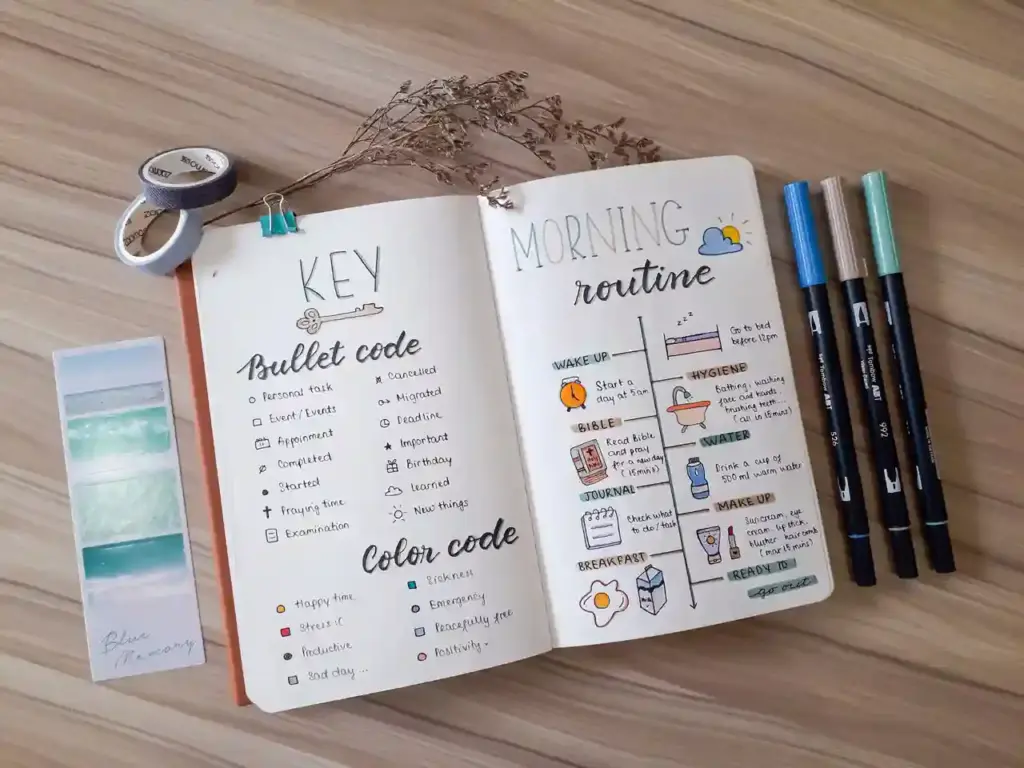 KEY
Bullet code
Personal task
Event/Events
Appoinment
Completed
Started
Praying time
Examination
Cancelled
Migrated
Deadline
Important
Birthday
Learned
New things
Color code
Happy time
Productive
Sad day...
Sickness
Emergency
Peacefully free
Positivity
MORNING
routine
Go to bed
before 12pm
WAKE UP
Start a
day at 5am
HYGIENE
Bathing, washing
face and hands,
brushing teeth...
(all in 15mins)
BIBLE
Read Bible
and pray
for a new day
(15mins)
WATER
Drink a cup of
500ml warm water
JOURNAL
Check what
to do/task
MAKE UP
Suncream, eye
cream, lipstick,
blusher, hair comb
(max 15mins)
BREAKFAST
READY TO
go out
Blue
Memory
Tombow ABT
526
992